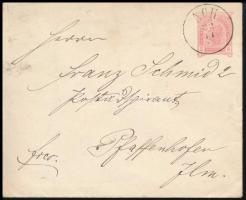 ACH
Herrn
Franz Schmid 2
Postadspirant
frco.
Pfaffenhofen
Ilm.